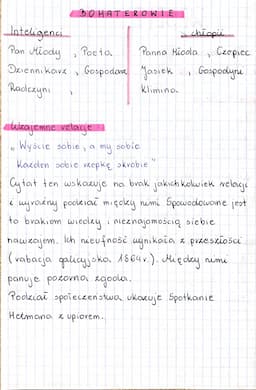 BOHATEROWIE
Inteligenci
chłopi
Pan Młody, Poeta,
Panna Młoda, Czepiec
Dziennikarz, Gospodarz
Jasiek, Gospodyni
Radczyni,
Klimina.
Wzajemne relacje
"Wyście sobie, a my sobie
Każden sobie rzepkę skrobie"
Cytat ten wskazuje na brak jakichkolwiek relacji
i wyraźny podział między nimi. Spowodowane jest
to brakiem wiedzy i nieznajomością siebie
nawzajem. Ich nieufność wynikała z przeszłości
(rabacja galicyjska, 1864r.). Między nimi
panuje pozorna zgoda.
Podział społeczeństwa ukazuje Spotkanie
Hetmana z upiorem.